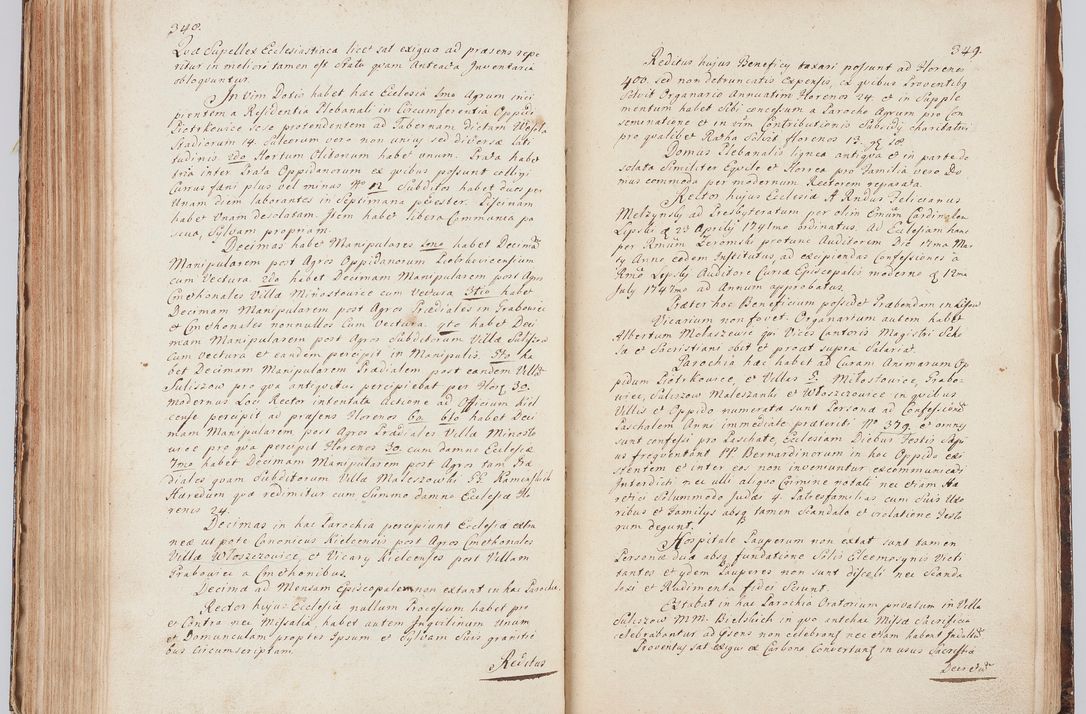 348.
Quæ Supellex Ecclesiastica licet sat exigua ad præsens repe
ritur in meliori tamen est statu quam Anteacta Inventaria
obloquuntur.
In vim Dotis habet hæc Ecclesia 1mo Agrum inci
pientem a Residentia Plebanali in Circumferentia Oppidi
Piotrkovice sese protendentem ad Tabernam dictam
Stadiorum 14. Sulcorum vero non unius sed diversæ lati
tudinis. 2do Hortum Olitorum habet unum. Prata habet
tria inter Prata Oppidanorum ex quibus possunt colligi
Currus fæni plus vel minus Nro 12. Subditos habet duos per
Unam diem laborantes in Septimana pedester. Piscinam
habet Unam desolatam. Item habet libera Communea pa
scua, Sylvam propriam.
Decimas habet Manipulares 1mo habet Decimam
Manipularem post Agros Oppidanorum
cum Vectura. 2do habet Decimam Manipularem post Agros
Cmethonales Villæ Minostowice cum Vectura 3tio habet
Decimam Manipularem post Agros Prædiales in Grabowiec
et Cmethonales nonnullos Cum Vectura. 4to habet Deci
mam Manipularem post Agros Subditorum Villæ Suliszow
Cum vectura et eandem percipit in Manipulis. 5to ha
bet Decimam Manipularem Prædialem post eandem Villam
Suliszow pro qua antiquitus percipiebat per Flor 30.
modernus Loci Rector intentata Actione ad Officium Kiel
cense percipit ad præsens Florenos 60. 6to habet Deci
mam Manipularem post Agros Prædiales Villæ Minosto
wice pro qua percipit Florenos 30. cum damno Ecclesiæ
7mo habet Decimam Manipularem post Agros tam Præ
diales quam Subditorum Villæ Maleszowski
Hæredum quæ redimitur cum Summo damno Ecclesiæ Flo
renis 24.
Decimas in hac Parochia percipiunt Ecclesiæ extra
neæ ut pote Canonicus Kielcensis post Agros Cmethonales
Villæ Włoszczowice, et Vicary Kielcenses post Villam
Grabowiec a Cmethonibus.
Decima ad Mensam Episcopalem non extant in hac Parochia.
Rector hujus Ecclesiæ nullum Processum habet pro
et Contra nec Missalia, habet autem Inquilinum Unum
et Domunculam propter Ipsum et Sylvam Suis graniti
bus circumscriptam.
Reditus
349.
Reditus hujus Beneficy taxari possunt ad Florenos
400. sed non detruncatis Expensis, ex quibus Proventibus
Solvit Organario Annuatim Florenos 24. et in Supple
mentum habet Sibi concessum a Parocho Agrum pro Con
seminatione et in vim Contributionis Subsidy charitativi
pro qualibet Ratha Solvit Florenos 13.
Domus Plebanalis lignea antiqua et in parte de
solata Similiter Equile et Horrea pro Familia vero Do
mus commoda per modernum Rectorem reparata.
Rector hujus Ecclesiæ A Rndus Felicianus
Melzynsky ad Presbyteratum per olim Emum Cardinalem
Lipski d 23 Aprily 1741mo ordinatus. Ad Ecclesiam hanc
per Rmum Zeromski protunc Auditorem Die 17ma Ma
ty Anno eodem Institutus, ad excipiendas Confessiones a
Rmo Lipsky Auditore Curiæ Episcopalis moderno d 12ma
July 1747mo ad Annum approbatus.
Præter hoc Beneficium possidet Præbendam in
Vicarium non fovet. Organarium autem habet
Albertum Molaszewic qui Vices Cantoris Magistri Sch
læ et Sacristiani obit et prout supra Salariat.
Parochia hæc habet ad Curam Animarum Op
pidum Piotrkovice, et Villas 5. Miłostowice, Grabo
wiec, Suliszow Maleszanki et Włoszczowice in quibus
Villis et Oppido numerata sunt Personæ ad Confessionem
Paschalem Anni immediate præteriti No 379. et omnes
sunt confessi pro Paschate, Ecclesiam Diebus Festis Sæpi
us frequentant PP Bernardinorum in hoc Oppido exi
stentem et inter eos non inveniuntur excommunicati
Interdicti nec ulli aliquo Crimine notati nec etiam Hæ
retici Solummodo Judæi 4. Patresfamilias cum Suis Uxo
ribus et Familys absq tamen Scandalo et violatione Festo
rum degunt.
Hospitale Pauperum non extat sunt tamen
Personæ duæ absq fundatione Solis Eleemosynis Victi
tantes et ydem Pauperes non sunt discoli nec Scanda
losi et Rudimenta fidei Sciunt.
Extabat in hac Parochia Oratorium privatum in Villa
Suliszow MM. Bielskich in quo antehac Missæ Sacrificia
celebrabantur ad præsens non celebrantur nec etiam habent Indultum
Proventus sat exigui ex Carbona Convertuntur in usus Sacristiæ
Decretum